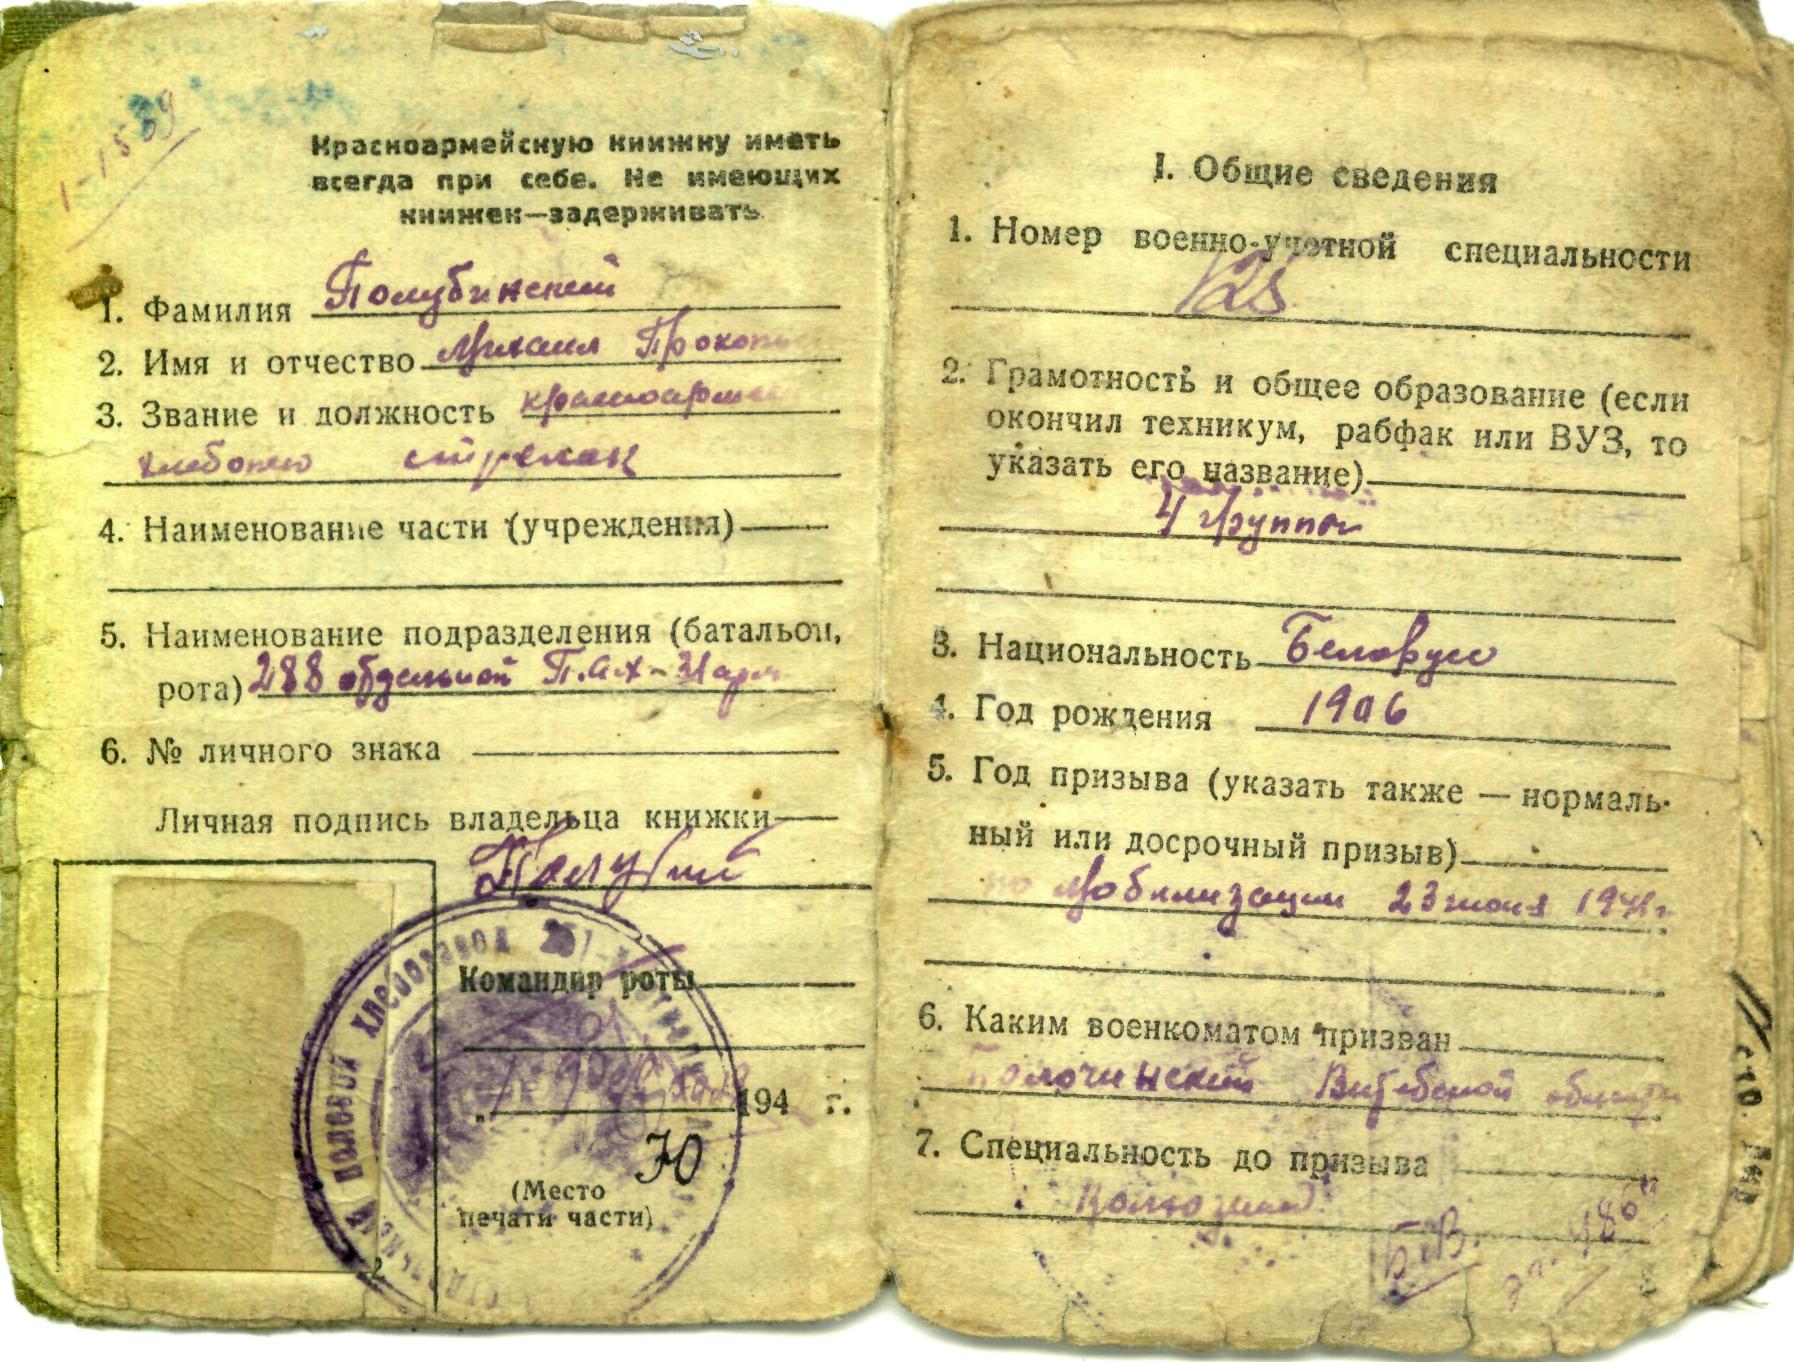 1-1539
Красноармейскую книжку иметь
всегда при себе. Не имеющих
книжек—задерживать.
1. Фамилия Полубинский
2. Имя и отчество Михаил Прокопь
3. Звание и должность красноарме
стрелок
4. Наименование части (учреждения)
5. Наименование подразделения (батальон,
рота) 288 отдельной П.А.Х-31 арм
6. № личного знака
Личная подпись владельца книжки
Полубин
Командир роты
194 г.
70
(Место
печати части)
полевой хлебозавод
I. Общие сведения
1. Номер военно-учетной специальности
125
2. Грамотность и общее образование (если
окончил техникум, рабфак или ВУЗ, то
указать его название)
4 группы
3. Национальность Беларус
4. Год рождения 1906
5. Год призыва (указать также — нормаль-
ный или досрочный призыв)
по мобилизации 23 июня 1941 г.
6. Каким военкоматом призван
Толочинский Витебской области
7. Специальность до призыва
Колхозник
Б.В.